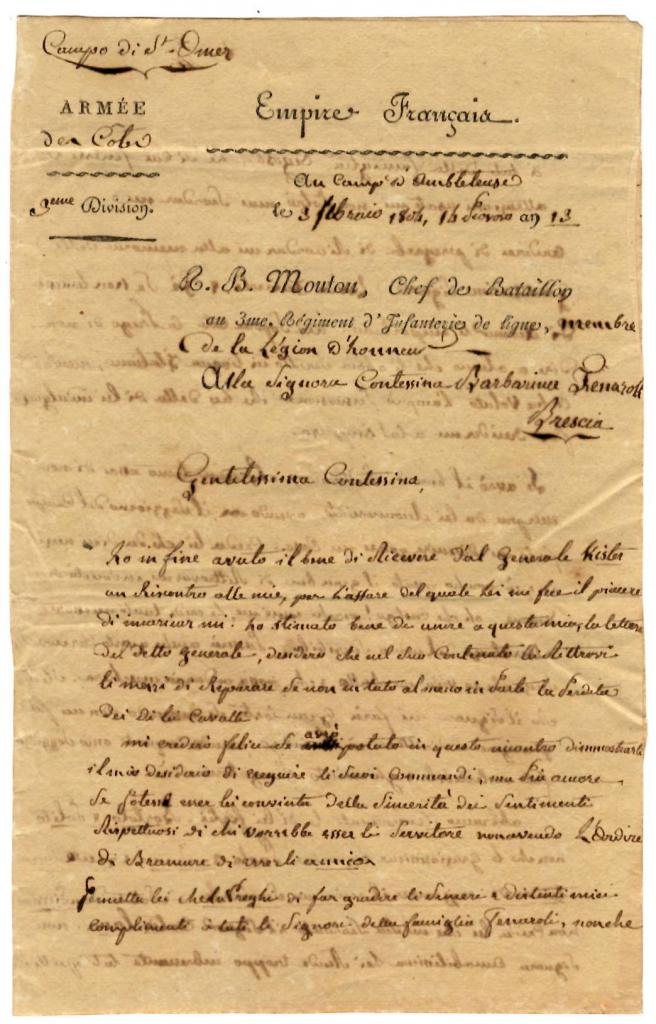 Campo di St. Omer
ARMÉE
des Côtes
Empire Français.
Au Camp d'Ambleteuse
3eme Division.
le 3 febraio 1804, 14 an 13
R. B. Mouton, Chef de Bataillon
au 3me. Régiment d'Infanterie de ligne, membre
de la Légion d'honneur
Alla Signora Contessina Barbarina Fenaroli
Brescia
Gentilissima Contessina,
Ho in fine avuto il bene di Ricevere dal Generale Kister
un Riscontro alle mie, per l'affare del quale Lei mi fece il piacere
di incaricar mi. ho stimato bene di unire a questa mia, la lettera
del detto Generale, desidero che nel Suo Contenuto Lei Rittrovi
li mezzi di Reparare Se non in tuto al meno in Parte la Perdita
dei di lei Cavalli
mi crederò felice Se avrò potuto in questo incontro dimmostrarle
il mio desiderio di eseguire li Suoi Commandi, ma Più ancora
Se potessi esser lei convinta della Sincerità dei Sentimenti
Rispettuosi di chi vorrebbe esserle Servitore non avendo L'ardire
di Bramare di esserli amico
Permetta lei che la Preghi di far gradire li Sinceri e distinti miei
complimenti a tuti li Signori della famiglia Fenaroli, nonche